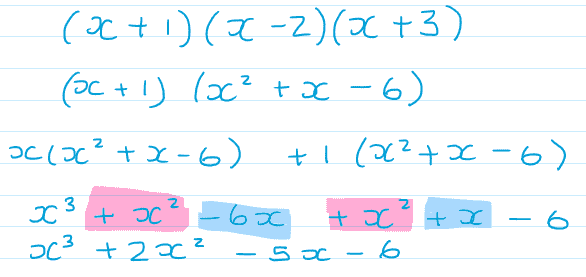 (x + 1)(x - 2)(x + 3)
(x + 1) (x² + x - 6)
x(x² + x - 6) + 1 (x² + x - 6)
x³ + x² - 6x + x² + x - 6
x³ + 2x² - 5x - 6